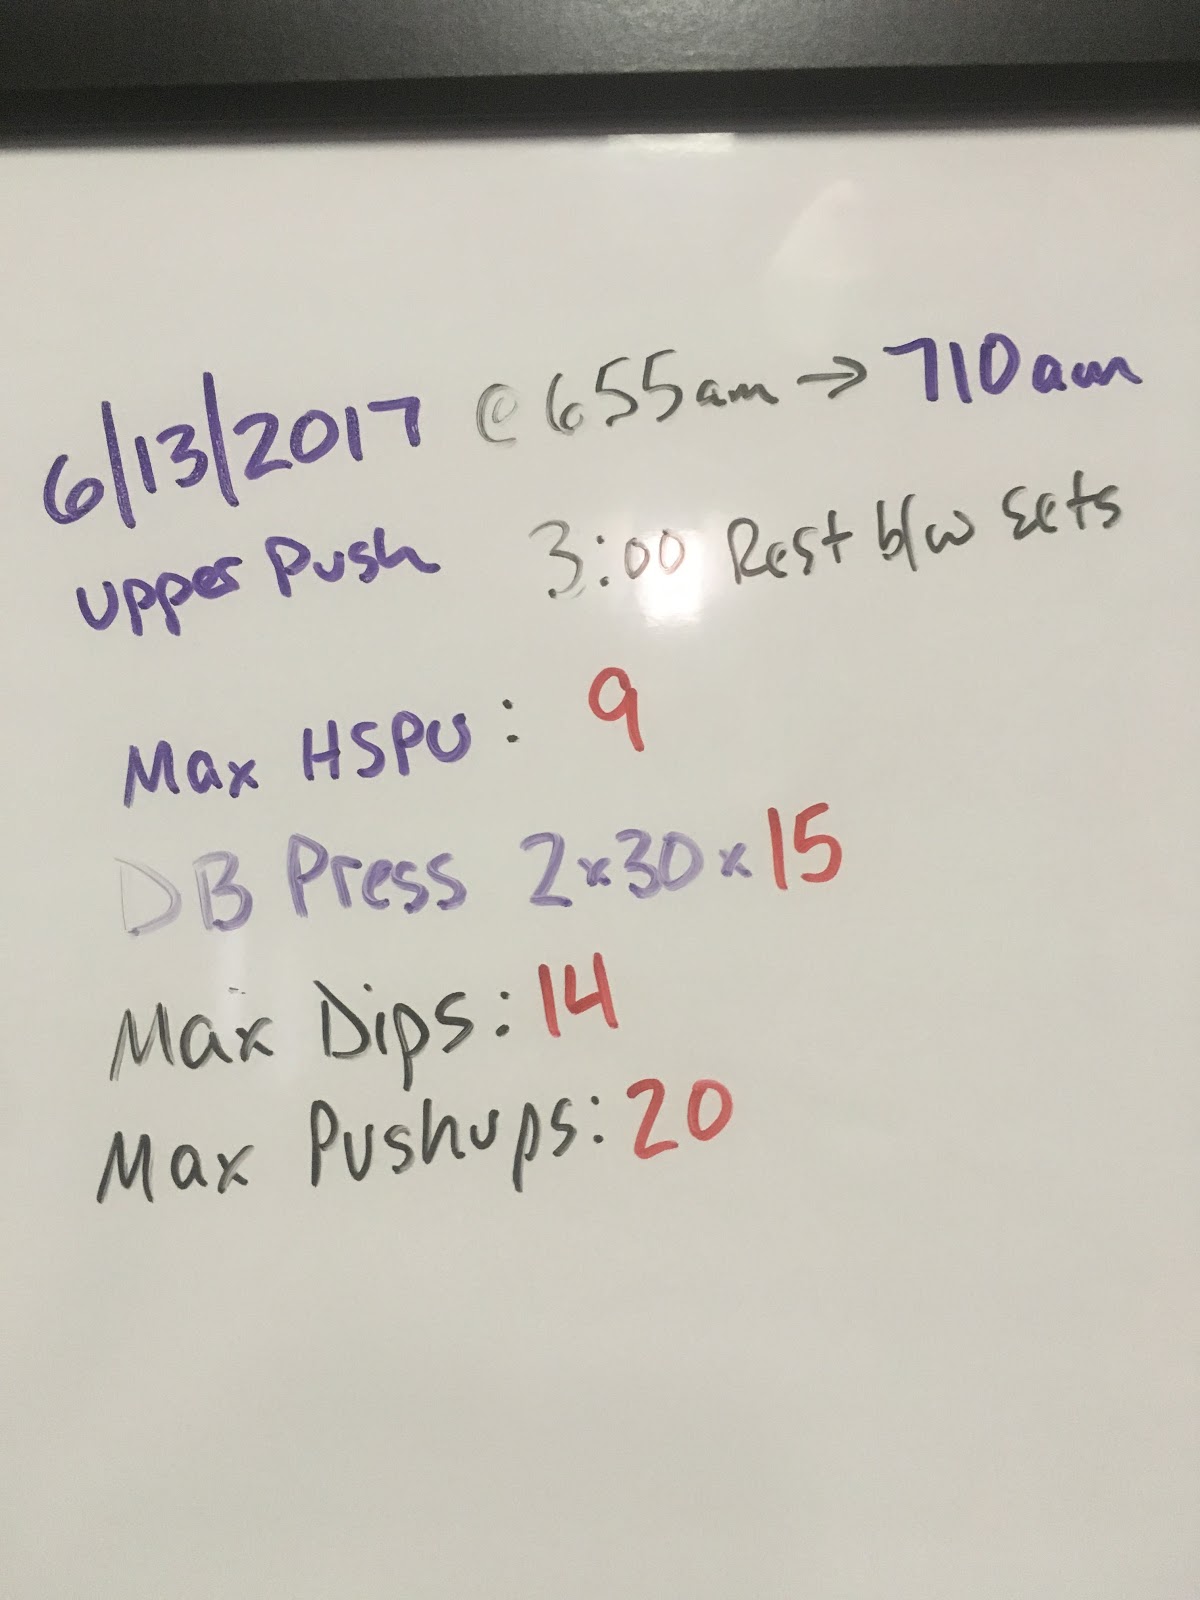 6/13/2017 @ 655am → 710am
Upper Push 3:00 Rest b/w sets
Max HSPU: 9
DB Press 2x30x15
Max Dips: 14
Max Pushups: 20